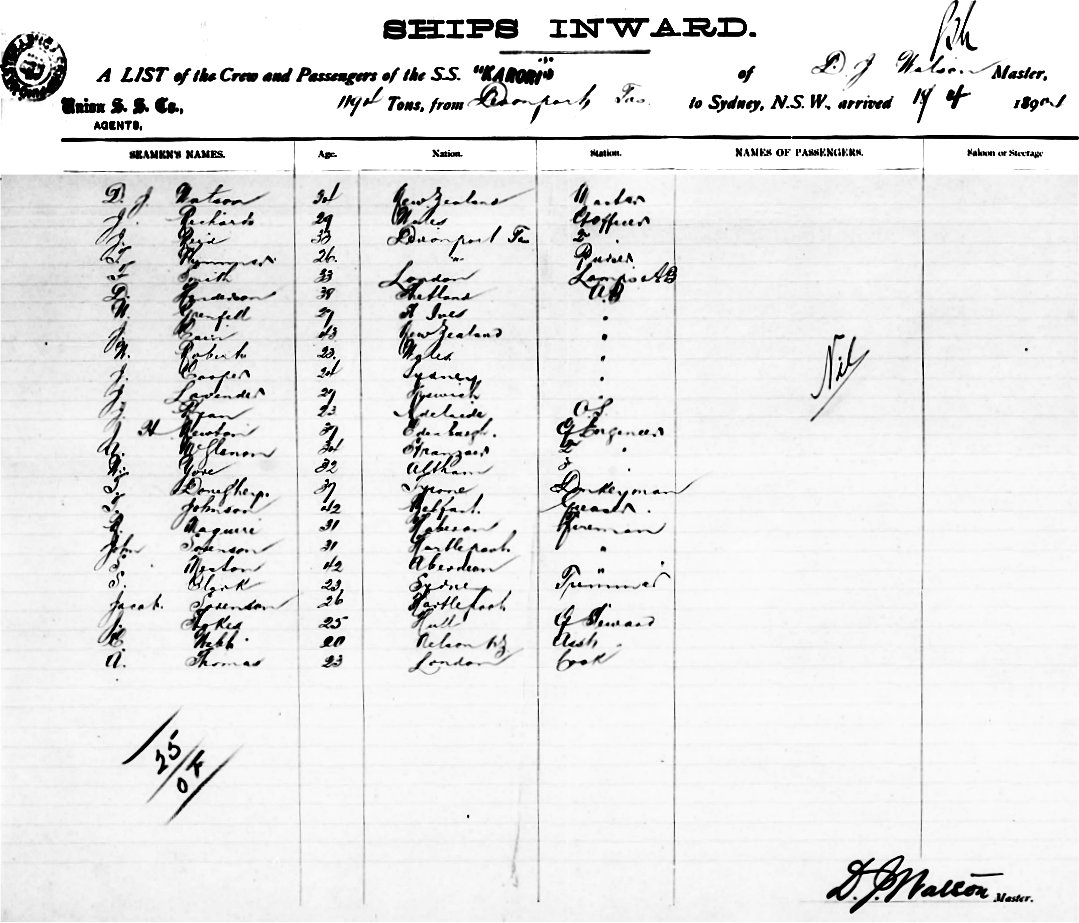 SHIPS INWARD.
A LIST of the Crew and Passengers of the S.S. "KARORI" of D J Watson Master,
Union S. S. Co., Tons, from Devonport, Tas. to Sydney, N.S.W., arrived 189
AGENTS,
SEAMEN'S NAMES. Age. Nation. Station. NAMES OF PASSENGERS. Saloon or Steerage
D. J Watson 34 New Zealand Master
J. Richards 29 Wales Officer
J. Reid 33 Devonport Ta 2
26 " Purser
Smith 33 London Lamps AB
D. Henderson 38 Shetland AB
W. Grenfell 29 St Ives "
J Cain 43 New Zealand "
W. Roberts 23 Wales "
J. Cooper 24 Sydney "
J Lavender 29 Ipswich
J. Ryan 23 Adelaide O.S.
J H Newton 39 Edinburgh. Engineer
McGlenon 34 2 "
Gore 32 Altham 3
Dougherty 39 Tyrone Donkeyman
Johnson 42 Belfast Greaser
R. Maguire 31 Fireman
John Sorenson 31 Hartlepool "
42 Aberdeen "
S. Clark 23 Sydney Trimmer
Jacob Sorenson 26 Hartlepool
J. Sykes 25 Hull Steward
C. Webb 20 Nelson NZ Asst.
A. Thomas 23 London Cook
Nil
25
D. J Watson Master.